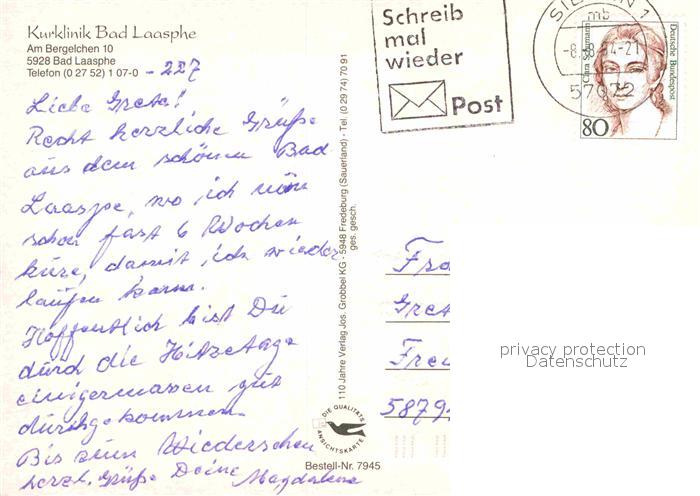 Kurklinik Bad Laasphe
Am Bergelchen 10
5928 Bad Laasphe
Telefon (0 27 52) 1 07-0 - 227
Liebe Grete!
Recht herzliche Grüße
aus dem schönen Bad
Laaspe, wo ich nun
schon fast 6 Wochen
kure, damit ich wieder
laufen kann.
Hoffentlich bist Du
durch die Hitzetage
einigermassen gut
durchgekommen.
Bis zum Wiedersehen
herzl. Grüße Deine Magdalena
110 Jahre Verlag Jos. Grobbel KG - 5948 Fredeburg (Sauerland) - Tel. (0 29 74) 70 91
ges. gesch.
DIE QUALITÄTS
ANSICHTSKARTE
Bestell-Nr. 7945
Schreib
mal
wieder
Post
SIEGEN 1
mb
-8.-8.94-21
57072
Clara Schumann
Deutsche Bundespost
80
Fra
Gret
Frei
5879
privacy protection
Datenschutz